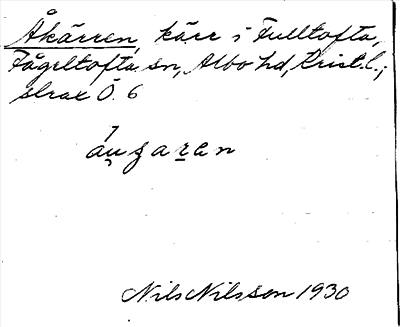 Åkärren, kärr i Fulltofta,
Fågeltofta sn, Albo hd, Krist. l.;
strax Ö. 6
Nils Nilsson 1930